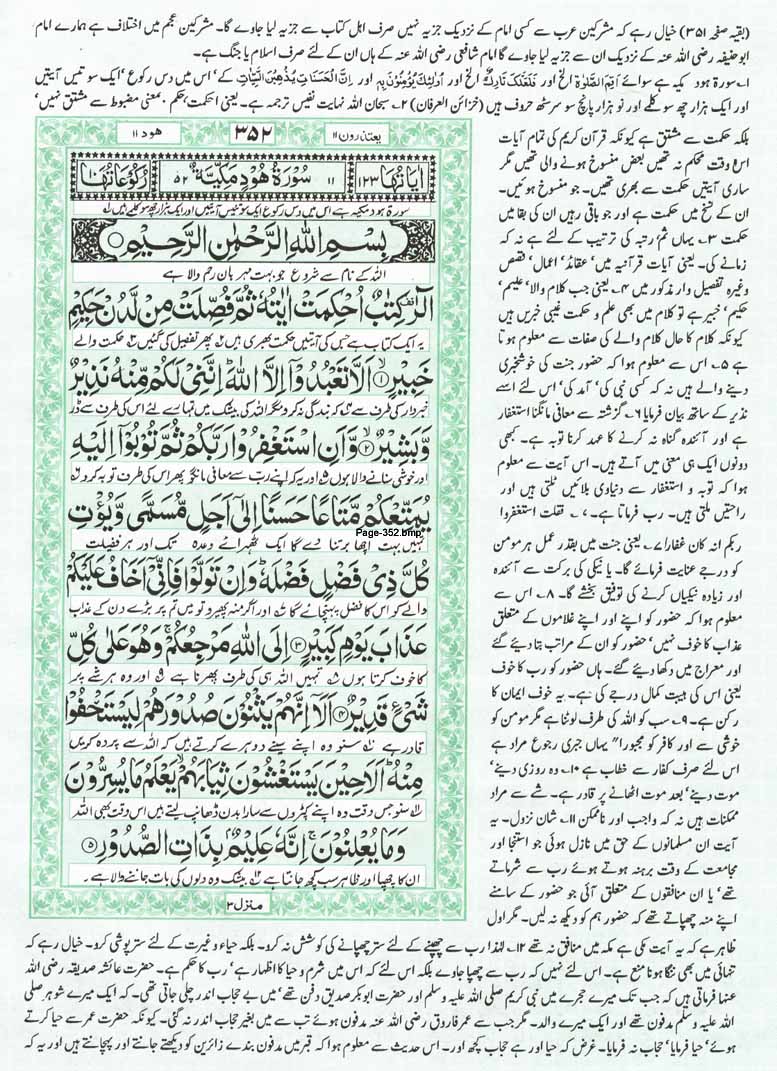 (بقیہ صفحہ ۳۵۱) خیال رہے کہ مشرکین عرب سے کسی امام کے نزدیک جزیہ نہیں صرف اہل کتاب سے جزیہ لیا جاوے گا۔ مشرکین عجم میں اختلاف ہے ہمارے امام
ابو حنیفہ رضی اللہ عنہ کے نزدیک ان سے جزیہ لیا جاوے گا امام شافعی رضی اللہ عنہ کے ہاں ان کے لئے صرف اسلام یا جنگ ہے۔
۱۔ سورۃ ہود مکیہ ہے سوائے اَقِمِ الصَّلٰوةَ الخ اور فَلَعَلَّكَ تَارِكٌ الخ اور اُولٰٓئِكَ يُؤْمِنُوْنَ بِهٖ اور اِنَّ الْحَسَنَاتِ يُذْهِبْنَ السَّيِّاٰتِ کے' اس میں دس رکوع' ایک سو تئیس آیتیں
اور ایک ہزار چھ سو کلمے اور نو ہزار پانچ سو سرسٹھ حروف ہیں (خزائن العرفان) ۲۔ سبحان اللہ نہایت نفیس ترجمہ ہے۔ یعنی احکمت' حکم . بمعنی مضبوط سے مشتق نہیں'
بلکہ حکمت سے مشتق ہے کیونکہ قرآن کریم کی تمام آیات
اس وقت محکم نہ تھیں بعض منسوخ ہونے والی تھیں مگر
ساری آیتیں حکمت سے بھری تھیں۔ جو منسوخ ہوئیں۔
ان کے نسخ میں حکمت ہے اور جو باقی رہیں ان کی بقا میں
حکمت ۳۔ یہاں ثم رتبہ کی ترتیب کے لئے ہے نہ کہ
زمانے کی۔ یعنی آیات قرآنیہ میں' عقائد' اعمال' قصص
وغیرہ تفصیل وار مذکور ہیں ۴۔ یعنی جب کلام والا' علیم'
حکیم' خبیر ہے تو کلام میں بھی علم و حکمت غیبی خبریں ہیں
کیونکہ کلام کا حال کلام والے کی صفات سے معلوم ہوتا
ہے ۵۔ اس سے معلوم ہوا کہ حضور جنت کی خوشخبری
دینے والے ہیں نہ کہ کسی نبی کی' آمد کی' اس لئے اسے
نذیر کے ساتھ بیان فرمایا ۶۔ گزشتہ سے معافی مانگنا استغفار
ہے اور آئندہ گناہ نہ کرنے کا عہد کرنا توبہ ہے۔ کبھی
دونوں ایک ہی معنی میں آتے ہیں۔ اس آیت سے معلوم
ہوا کہ توبہ و استغفار سے دنیاوی بلائیں ٹلتی ہیں اور
راحتیں ملتی ہیں۔ رب فرماتا ہے۔ فقلت استغفروا
ربکم انہ کان غفارا ۷۔ یعنی جنت میں بقدر عمل ہر مومن
کو درجے عنایت فرمائے گا۔ یا نیکی کی برکت سے آئندہ
اور زیادہ نیکیاں کرنے کی توفیق بخشے گا۔ ۸۔ اس سے
معلوم ہوا کہ حضور کو اپنے اور اپنے غلاموں کے متعلق
عذاب کا خوف نہیں' حضور کو ان کے مراتب بتا دیئے گئے
اور معراج میں دکھا دیئے گئے۔ ہاں حضور کو رب کا خوف
یعنی اس کی ہیبت کمال درجے کی ہے۔ یہ خوف ایمان کا
رکن ہے۔ ۹۔ سب کو اللہ کی طرف لوٹنا ہے مگر مومن کو
خوشی سے اور کافر کو مجبوراً' یہاں جبری رجوع مراد ہے
اس لئے صرف کفار سے خطاب ہے ۱۰۔ وہ روزی دینے'
موت دینے' بعد موت اٹھانے پر قادر ہے۔ شے سے مراد
ممکنات ہیں نہ کہ واجب اور ناممکن ۱۱۔ شان نزول۔ یہ
آیت ان مسلمانوں کے حق میں نازل ہوئی جو استنجا اور
مجامعت کے وقت برہنہ ہوتے ہوئے رب سے شرماتے
تھے' یا ان منافقوں کے متعلق آئی جو حضور کے سامنے
اپنے منہ چھپاتے تھے کہ حضور ہم کو دیکھ نہ لیں۔ مگر اول
یعتذرون ۱۱ ۳۵۲ ھود ۱۱
اٰیَاتُهَا ۱۲۳ ۱۱ سُوْرَةُ هُوْدٍ مَكِّيَّةٌ ۵۲ رُكُوْعَاتُهَا ۱۰
سورۃ ہود مکیہ ہے اس میں دس رکوع ایک سو تئیس آیتیں اور ایک ہزار چھ سو کلمے ہیں ۱
بِسْمِ اللّٰهِ الرَّحْمٰنِ الرَّحِيْمِ
اللہ کے نام سے شروع جو بہت مہربان رحم والا ہے
الٓرٰ كِتٰبٌ اُحْكِمَتْ اٰيٰتُهٗ ثُمَّ فُصِّلَتْ مِنْ لَّدُنْ حَكِيْمٍ
یہ ایک کتاب ہے جس کی آیتیں حکمت بھری ہیں ۲ پھر تفصیل کی گئیں ۳ حکمت والے
خَبِيْرٍ ۙ﴿۱﴾ اَلَّا تَعْبُدُوْۤا اِلَّا اللّٰهَ ؕ اِنَّنِيْ لَكُمْ مِّنْهُ نَذِيْرٌ
خبردار کی طرف سے ۴ کہ بندگی نہ کرو مگر اللہ کی بیشک میں تمہارے لئے اس کی طرف سے ڈر
وَّ بَشِيْرٌ ۙ﴿۲﴾ وَّ اَنِ اسْتَغْفِرُوْا رَبَّكُمْ ثُمَّ تُوْبُوْۤا اِلَيْهِ
اور خوشی سنانے والا ہوں ۵ اور یہ کہ اپنے رب سے معافی مانگو پھر اس کی طرف توبہ کرو ۶
يُمَتِّعْكُمْ مَّتَاعًا حَسَنًا اِلٰۤى اَجَلٍ مُّسَمًّى وَّ يُؤْتِ
Page-352.bmp
تمہیں بہت اچھا برتنا دے گا ایک ٹھہرائے وعدہ تک اور ہر فضیلت
كُلَّ ذِيْ فَضْلٍ فَضْلَهٗ ؕ وَ اِنْ تَوَلَّوْا فَاِنِّيْۤ اَخَافُ عَلَيْكُمْ
والے کو اس کا فضل پہنچائے گا ۷ اور اگر منہ پھیرو تو میں تم پر بڑے دن کے عذاب
عَذَابَ يَوْمٍ كَبِيْرٍ ﴿۳﴾ اِلَى اللّٰهِ مَرْجِعُكُمْ ۚ وَ هُوَ عَلٰى كُلِّ
کا خوف کرتا ہوں ۸ تمہیں اللہ ہی کی طرف پھرنا ہے ۹ اور وہ ہر شے پر
شَيْءٍ قَدِيْرٌ ﴿۴﴾ اَلَاۤ اِنَّهُمْ يَثْنُوْنَ صُدُوْرَهُمْ لِيَسْتَخْفُوْا
قادر ہے ۱۰ سنو وہ اپنے سینے دوہرے کرتے ہیں کہ اللہ سے پردہ کریں
مِنْهُ ؕ اَلَا حِيْنَ يَسْتَغْشُوْنَ ثِيَابَهُمْ ۙ يَعْلَمُ مَا يُسِرُّوْنَ
۱۱ سنو جس وقت وہ اپنے کپڑوں سے سارا بدن ڈھانپ لیتے ہیں اس وقت بھی اللہ
وَ مَا يُعْلِنُوْنَ ۚ اِنَّهٗ عَلِيْمٌۢ بِذَاتِ الصُّدُوْرِ ﴿۵﴾
ان کا چھپا اور ظاہر سب کچھ جانتا ہے ۱۲ بیشک وہ دلوں کی بات جاننے والا ہے۔
منزل ۳
ظاہر ہے کہ یہ آیت مکی ہے مکہ میں منافق نہ تھے ۱۲۔ لہٰذا رب سے چھپنے کے لئے ستر چھپانے کی کوشش نہ کرو۔ بلکہ حیاء و غیرت کے لئے ستر پوشی کرو۔ خیال رہے کہ
تنہائی میں بھی ننگا ہونا منع ہے۔ اس لئے نہیں کہ رب سے چھپا جاوے بلکہ اس لئے کہ اس میں شرم و حیا کا اظہار ہے' رب کا حکم ہے۔ حضرت عائشہ صدیقہ رضی اللہ
عنہا فرماتی ہیں کہ جب تک میرے حجرے میں نبی کریم صلی اللہ علیہ وسلم اور حضرت ابو بکر صدیق دفن تھے' میں بے حجاب اندر چلی جاتی تھی۔ کہ ایک میرے شوہر صلی
اللہ علیہ وسلم مدفون تھے اور ایک میرے والد۔ مگر جب سے عمر فاروق رضی اللہ عنہ مدفون ہوئے تب سے میں بغیر حجاب اندر نہ گئی۔ کیونکہ حضرت عمر سے حیا کرتے
ہوئے' حیا فرمایا' حجاب نہ فرمایا۔ غرض کہ حیا اور ہے حجاب کچھ اور۔ اس حدیث سے معلوم ہوا کہ قبر میں مدفون بندے زائرین کو دیکھتے جانتے اور پہچانتے ہیں اور یہ کہ